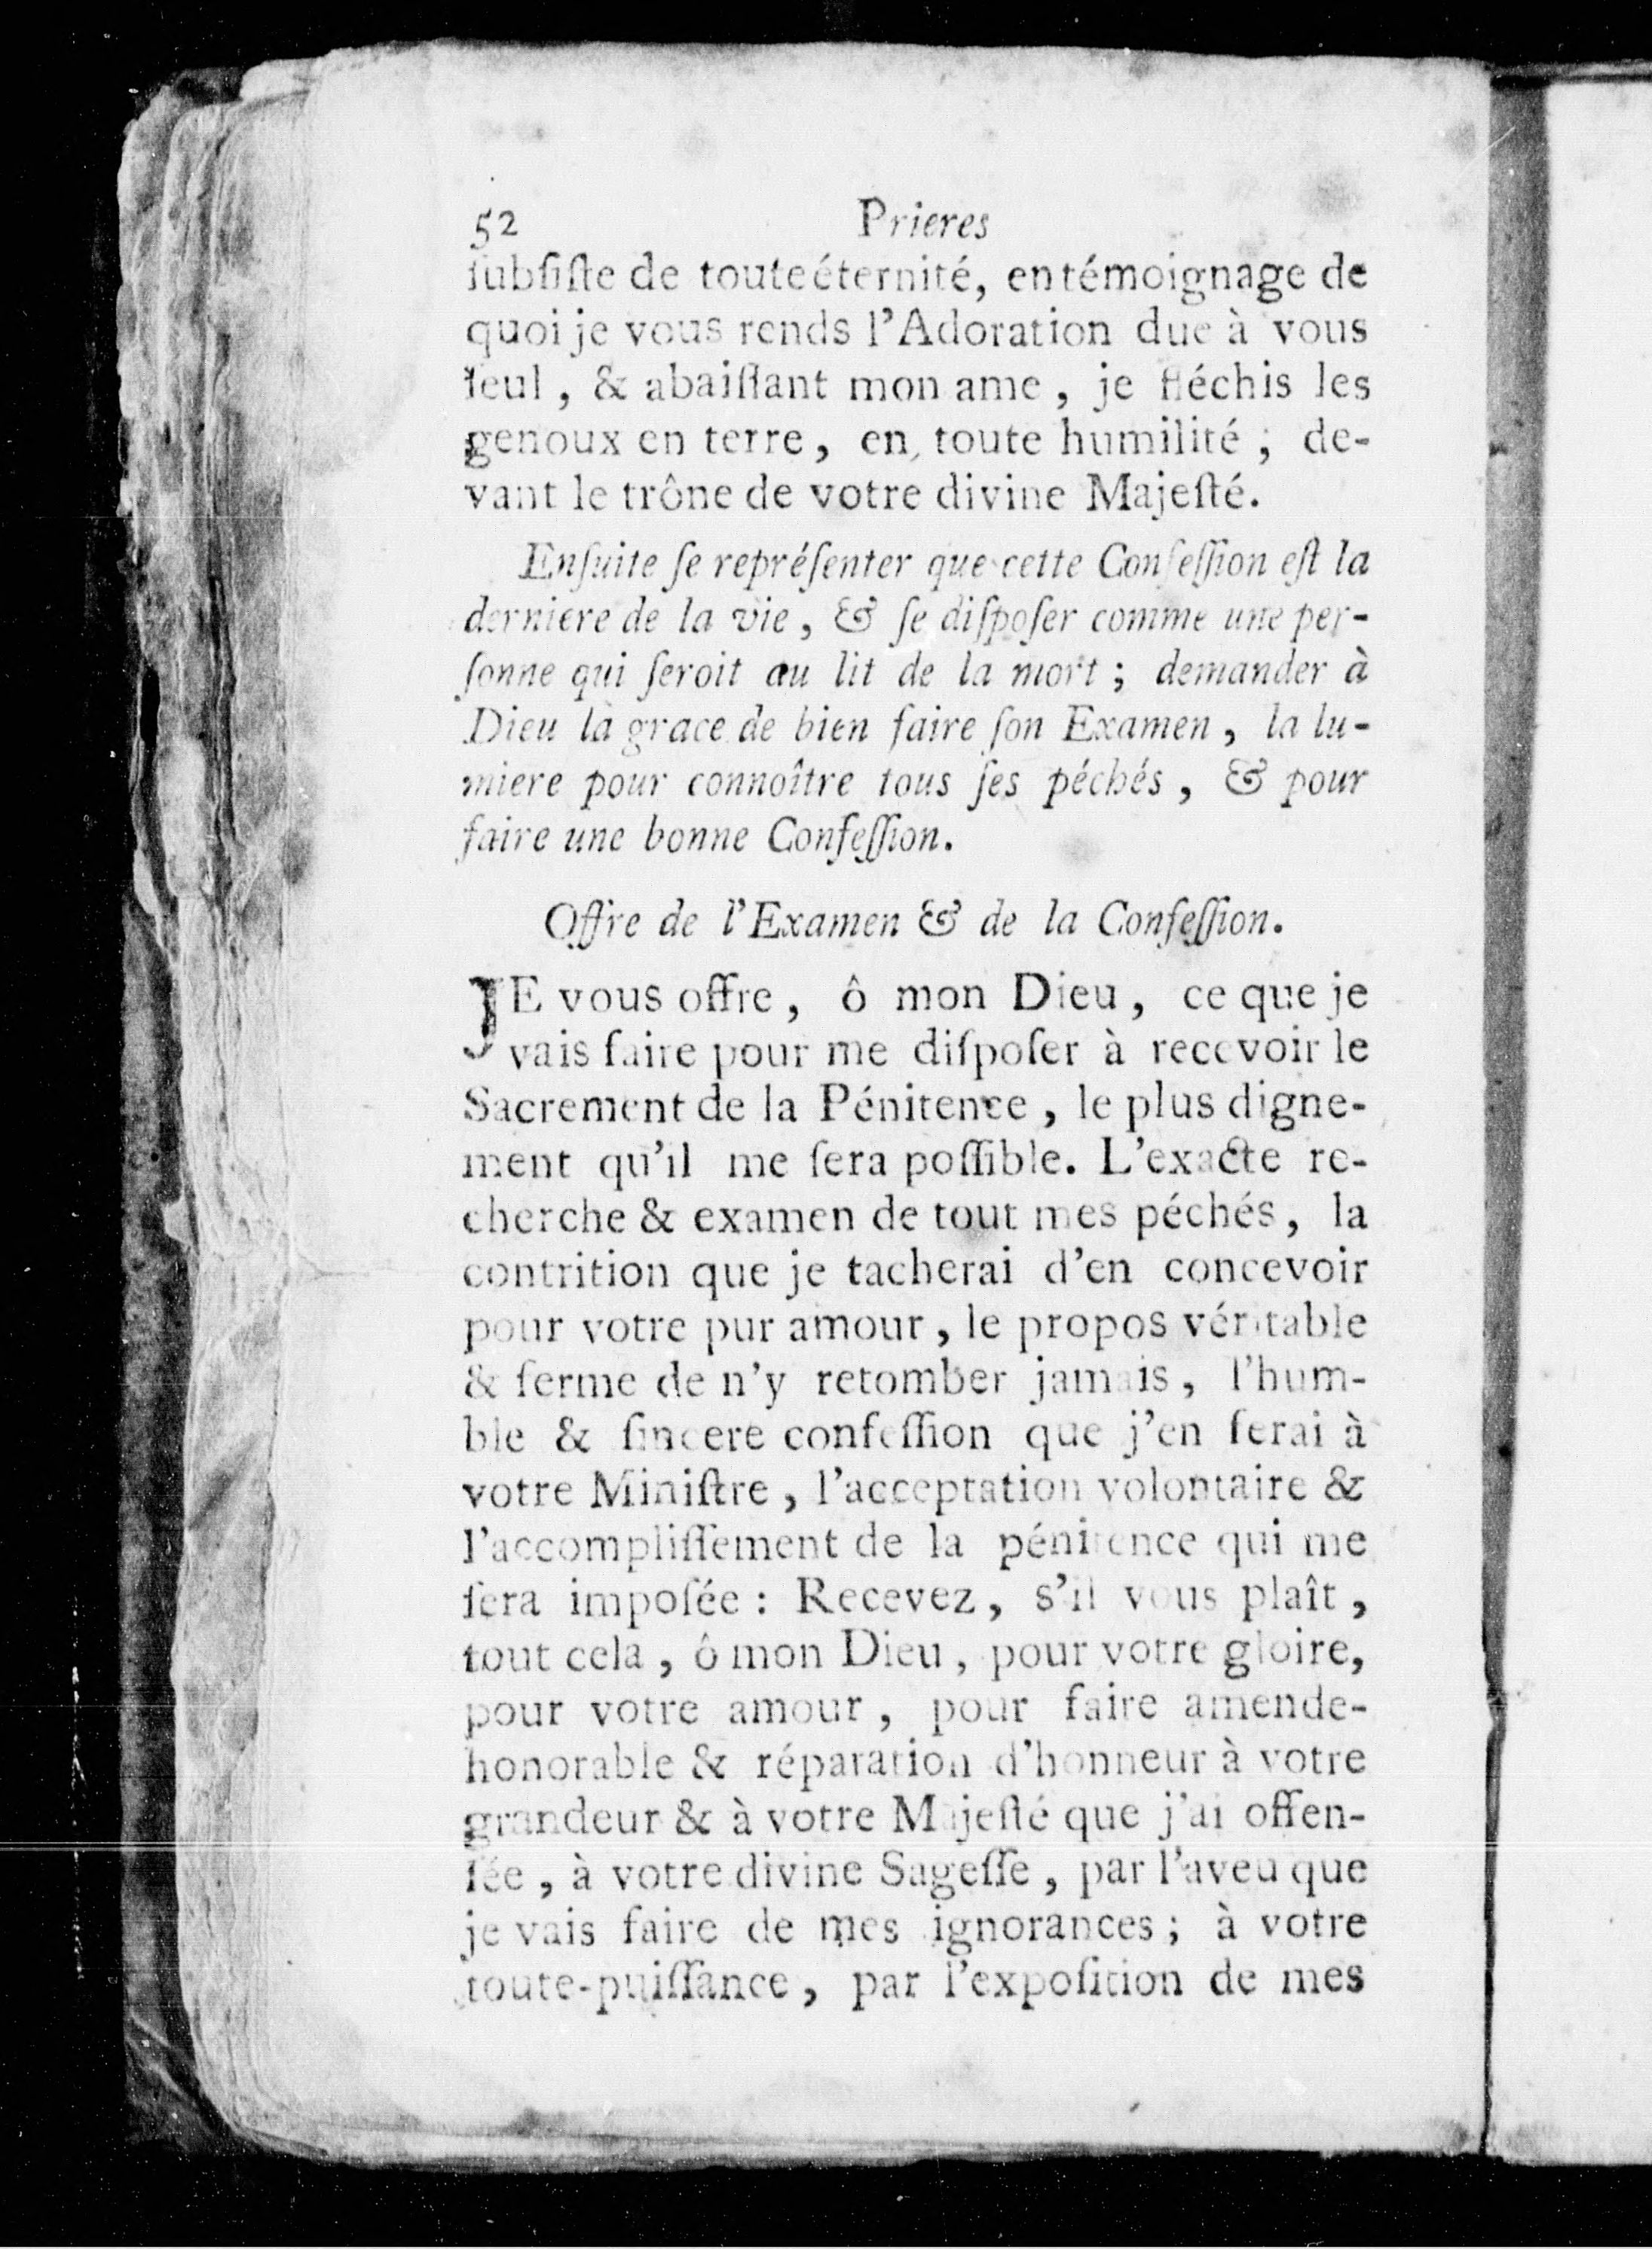 52 Prieres
ſubſiſte de toute éternité, en témoignage de
quoi je vous rends l'Adoration due à vous
ſeul, & abaiſſant mon ame, je fléchis les
genoux en terre, en toute humilité; de-
vant le trône de votre divine Majeſté.
Enſuite ſe repréſenter que cette Confeſſion eſt la
derniere de la vie, & ſe diſpoſer comme une per-
ſonne qui ſeroit au lit de la mort; demander à
Dieu la grace de bien faire ſon Examen, la lu-
miere pour connoître tous ſes péchés, & pour
faire une bonne Confeſſion.
Offre de l'Examen & de la Confeſſion.
JE vous offre, ô mon Dieu, ce que je
vais faire pour me diſpoſer à recevoir le
Sacrement de la Pénitence, le plus digne-
ment qu'il me ſera poſſible. L'exacte re-
cherche & examen de tout mes péchés, la
contrition que je tacherai d'en concevoir
pour votre pur amour, le propos véritable
& ferme de n'y retomber jamais, l'hum-
ble & ſincere confeſſion que j'en ferai à
votre Miniſtre, l'acceptation volontaire &
l'accompliſſement de la pénitence qui me
ſera impoſée: Recevez, s'il vous plaît,
tout cela, ô mon Dieu, pour votre gloire,
pour votre amour, pour faire amende-
honorable & réparation d'honneur à votre
grandeur & à votre Majeſté que j'ai offen-
ſée, à votre divine Sageſſe, par l'aveu que
je vais faire de mes ignorances; à votre
toute-puiſſance, par l'expoſition de mes